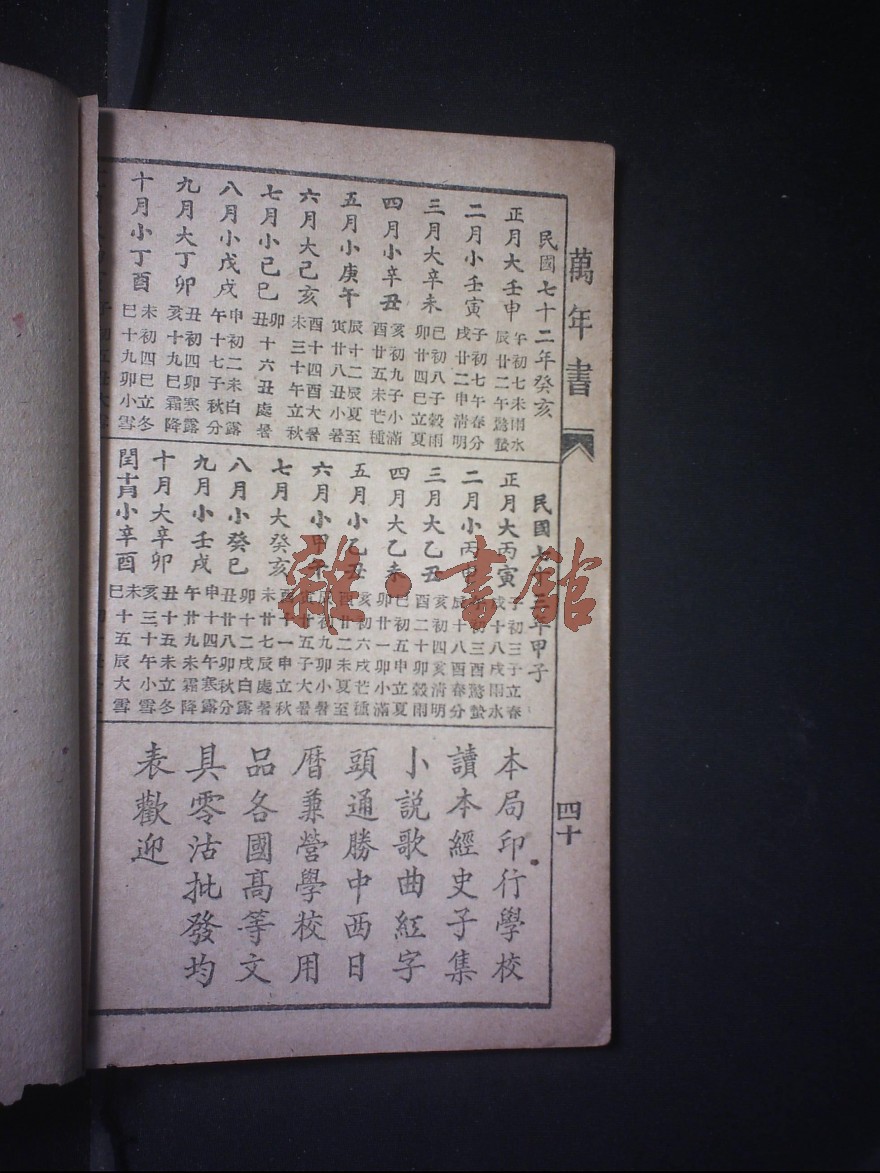 萬年書
民國七十二年癸亥
正月大壬申
午初七未雨水
辰廿二午驚蟄
二月小壬寅
子初七午春分
戌廿二申清明
三月大辛未
巳初八子穀雨
卯廿四巳立夏
四月小辛丑
亥初九子小滿
酉廿五未芒種
五月小庚午
辰十二辰夏至
寅廿八丑小暑
六月大己亥
酉十四酉大暑
未三十午立秋
七月小己巳
卯
丑十六丑處暑
八月小戊戌
申初二未白露
午十七子秋分
九月大丁卯
丑初四卯寒露
亥十九巳霜降
十月小丁酉
未初四巳立冬
巳十九卯小雪
民國七十三年甲子
正月大丙寅
子初三子立春
戌十八戌雨水
二月小丙申
初三酉驚蟄
辰十八酉春分
三月大乙丑
亥初四亥清明
酉二十卯穀雨
四月大乙未
巳初五申立夏
卯廿一卯小滿
五月小乙丑
亥初六戌芒種
酉廿二未夏至
六月小甲午
辰初九卯小暑
寅廿五子大暑
七月大癸亥
酉十一申立秋
未廿七辰處暑
八月小癸巳
卯十二戌白露
丑廿八卯秋分
九月小壬戌
申十四午寒露
午廿九未霜降
十月大辛卯
丑十五未立冬
亥三十午小雪
閏十月小辛酉
未
巳十五辰大雪
本局印行學校
讀本經史子集
小説歌曲紅字
頭通勝中西日
曆兼營學校用
品各國高等文
具零沽批發均
表歡迎
四十
雜·書館